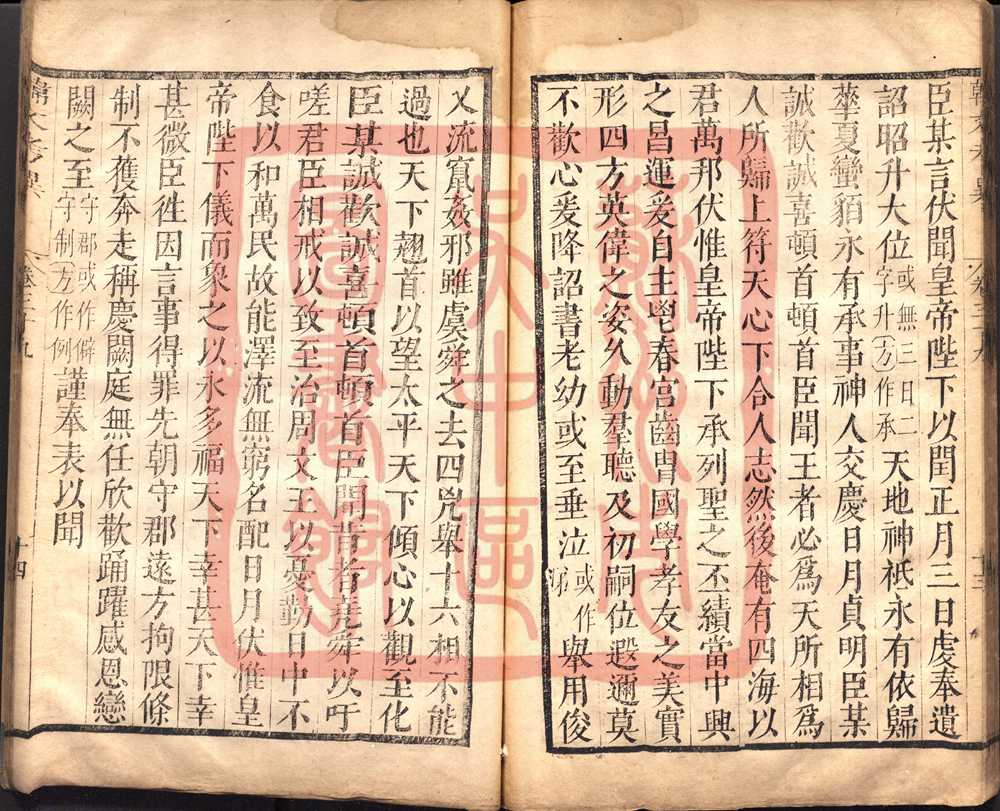 臣某言伏聞皇帝陛下以閏正月三日虔奉遺
詔昭升大位或無三日二字升方作承天地神祇永有依歸
華夏蠻貊永有承事神人交慶日月貞明臣某
誠歡誠喜頓首頓首臣聞王者必為天所相為
人所歸上符天心下合人志然後奄有四海以
君萬邦伏惟皇帝陛下承列聖之丕績當中興
之昌運爰自主鬯春宮齒胄國學孝友之美實
形四方英偉之姿久動羣聽及初嗣位遐邇莫
不歡心爰降詔書老幼或至垂泣或作涕舉用俊
乂流竄姦邪雖虞舜之去四兇舉十六相不能
過也天下翹首以望太平天下傾心以觀至化
臣某誠歡誠喜頓首頓首臣聞昔者堯舜以吁
嗟君臣相戒以致至治周文王以憂勤日中不
食以和萬民故能澤流無窮名配日月伏惟皇
帝陛下儀而象之以永多福天下幸甚天下幸
甚微臣徃因言事得罪先朝守郡遠方拘限條
制不獲奔走稱慶闕庭無任欣歡踊躍感恩戀
闕之至守郡或作僻守制方作例謹奉表以聞
卷三十九
十四